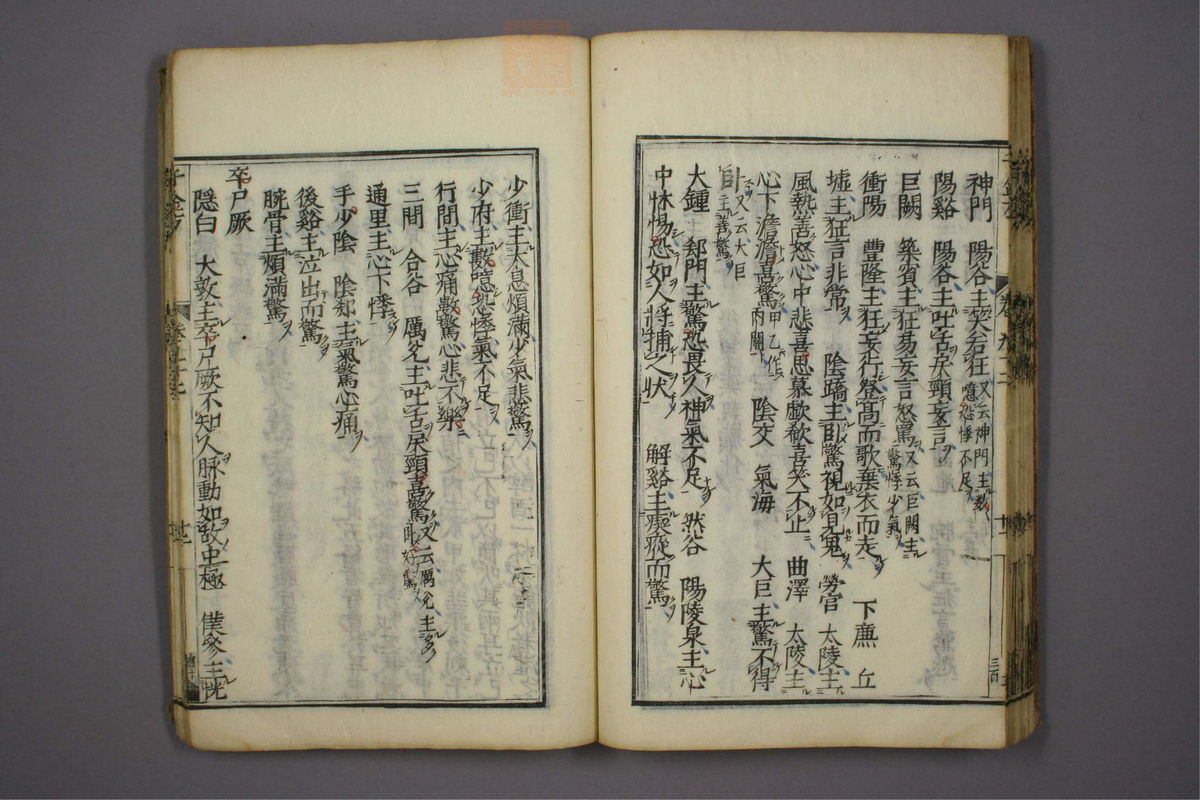 神門 陽谷主笑若狂 又云神門主數噫恐悸不足
陽谿 陽谷主吐舌戾頸妄言
巨闕 築賓主狂易妄言怒罵 又云巨闕主驚悸少氣
衝陽 豐隆主狂妄行登高而歌棄衣而走 下廉 丘
墟主狂言非常 陰蹻主卧驚視如見鬼 勞宮 太陵主
風熱善怒心中悲喜思慕歔欷喜笑不止 曲澤 太陵主
心下澹澹喜驚 甲乙作內關 陰交 氣海 大巨主驚不得
卧 又云大巨主善驚
大鍾 郄門主驚恐畏人神氣不足 然谷 陽陵泉主心
中怵惕恐如人將捕之狀 解谿主瘈瘲而驚
少衝主太息煩滿少氣悲驚
少府主數噫恐悸氣不足
行間主心痛數驚心悲不樂
三間 合谷 厲兌主吐舌戾頸喜驚 又云厲兌主多卧好驚
通里主心下悸
手少陰 陰郄主氣驚心痛
後谿主泣出而驚
腕骨主煩滿驚
卒尸厥
隱白 大敦主卒尸厥不知人脉動如故中極 僕參主恍